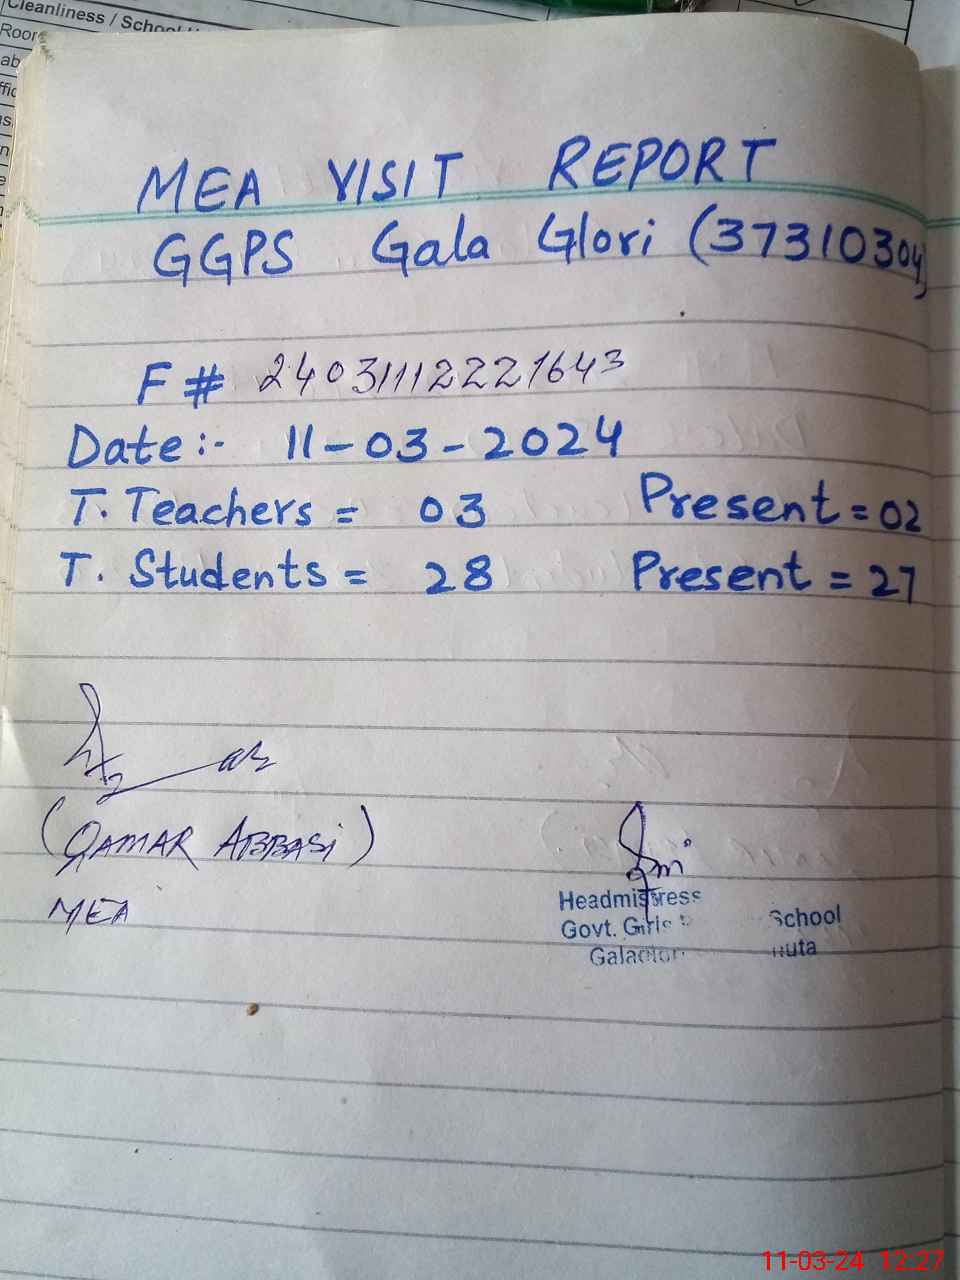 Cleanliness / School
Room
MEA VISIT REPORT
GGPS Gala Glori (37310304)
F # 24031112221643
Date :- 11-03-2024
T. Teachers = 03 Present = 02
T. Students = 28 Present = 27
(QAMAR ABBASi)
MEA
Headmistress
Govt. Girls School
11-03-24 12:27